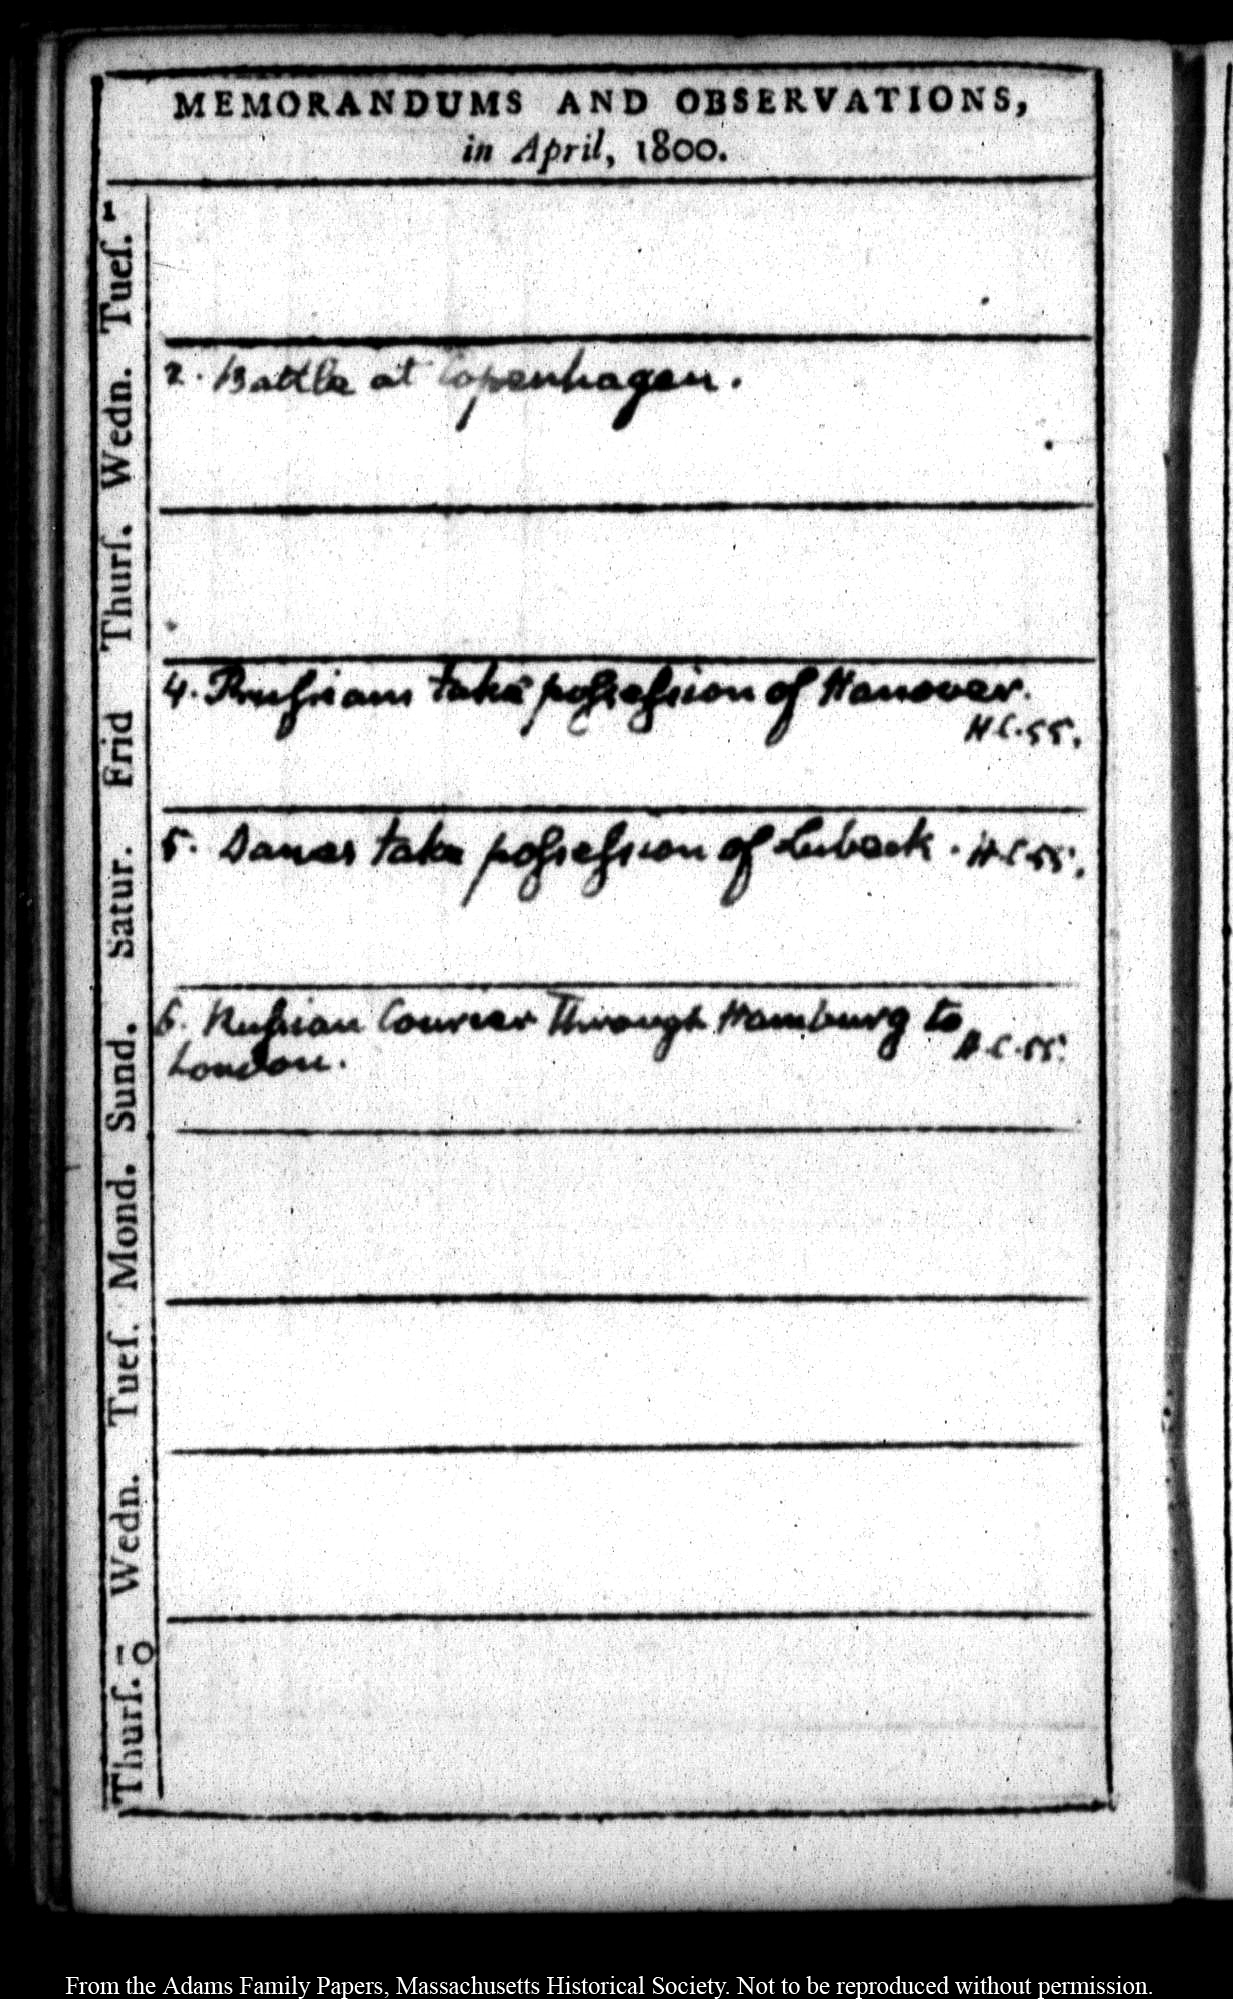 MEMORANDUMS AND OBSERVATIONS,
in April, 1800.
1
Tueſ.
Wedn.
2. Battle at Copenhagen.
Thurſ.
Frid
4. Prussians take possession of Hanover.
H.C.55.
Satur.
5. Danes take possession of Lubeck. H.C.55.
Sund.
6. Russian Courier Through Hamburg to
H.C.55.
London.
Mond.
Tueſ.
Wedn.
Thurſ. 10
From the Adams Family Papers, Massachusetts Historical Society. Not to be reproduced without permission.